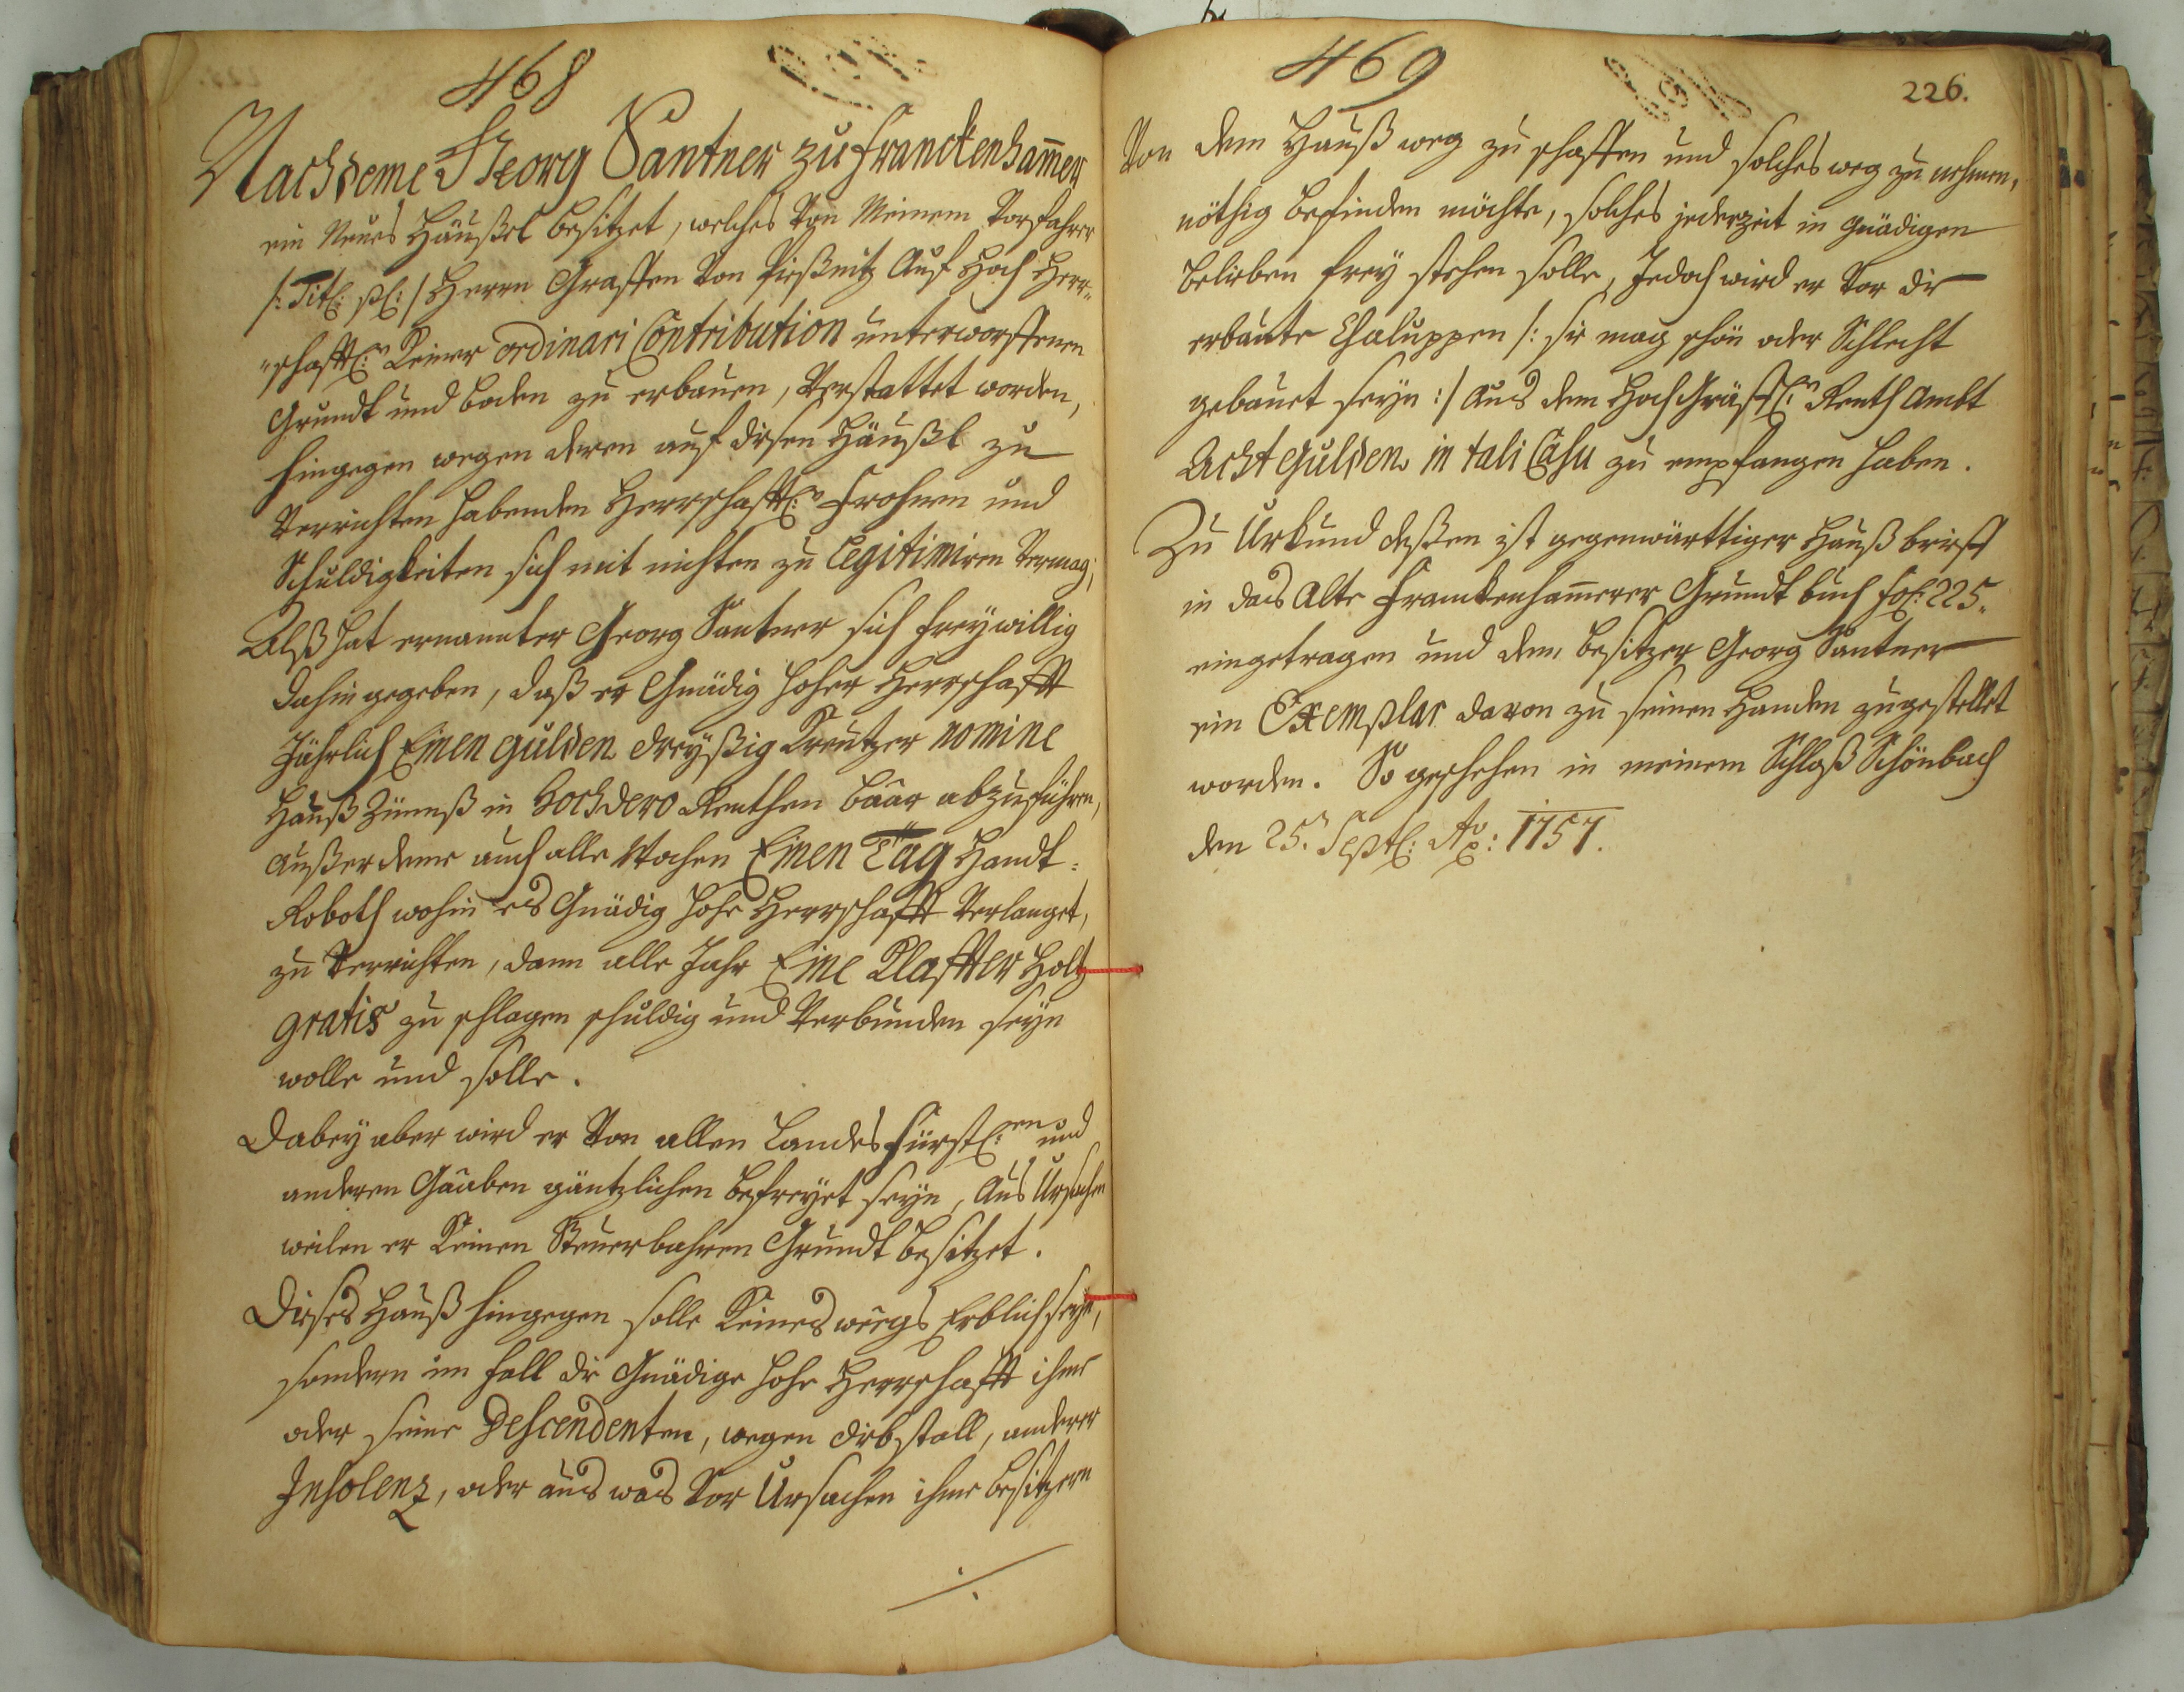 468
Nachdeme Georg Santner zu Franckenham̄er
ein Neues Häußel besitzet, welches Von Meinem Vorfahrer
/: Titl: pl: / Herrn Graffen Von Pießnitz Auf Hoch Herr-
"schafftl:n Keiner ordinari Contribution unterworffenen
Grundt und boden zu erbauen, Verstattet worden,
hingegen wegen deren auf disen Häußl zu
Verrichten habenden Herrschafftl:n Frohnen und
Schuldigkeiten sich mit nichten zu Legitimiren Vermag;
Alß hat ernannter Georg Santner sich freywillig
dahin gegeben, daß er Gnädig hoher Herrschafft
Jährlich Einen gulden dreyßig Kreutzer nomine
Hauß Zünnß in hochdero Renthen baar abzuführen,
außer deme auch alle Wochen Einen Tag Handt-
Roboth wohin es Gnädig hohe Herrschafft Verlanget,
zu Verrichten, dann alle Jahr Eine Klaffter Holtz
gratis zu schlagen schuldig und Verbunden seyn
wolle und solle.
Dabey aber wird er Von allen Landes Fürstl:en und
anderen Gaaben gäntzlichen befreyet seyn, Aus Ursachen
weilen er Keinen Steuerbahren Grundt besitzet.
Dieses Hauß hingegen solle Keines weegs Erblich seyn,
sondern im fall die Gnädige hohe Herrschafft ihme
oder seine Descendenten, wegen diebstall, anderer
Insolenz, oder aus was Vor Ursachen ihme besitzern
./.
469
226.
Von dem Hauß weg zu schaffen und solches weg zu nehmen,
nöthig befinden möchte, solches jederzeit in gnädigen
belieben frey stehen solle, Jedoch wird er Vor die
erbaute Chaluppen /: sie mag schön oder Schlecht
gebauet seyn :/ Aus dem Hoch Gräffl:n Renth Ambt
Acht gulden in tali Casu zu empfangen haben.
Zu Urkund deßen ist gegenwärttiger Hauß brieff
in das Alte Franckenham̄erer Grundt buch fol: 225.
eingetragen und dem besitzer Georg Santner
ein Exemplar davon zu seinen Handen zugestellet
worden. So geschehen in meinem Schloß Schönbach
den 25.n Septl: Ao: 1757.